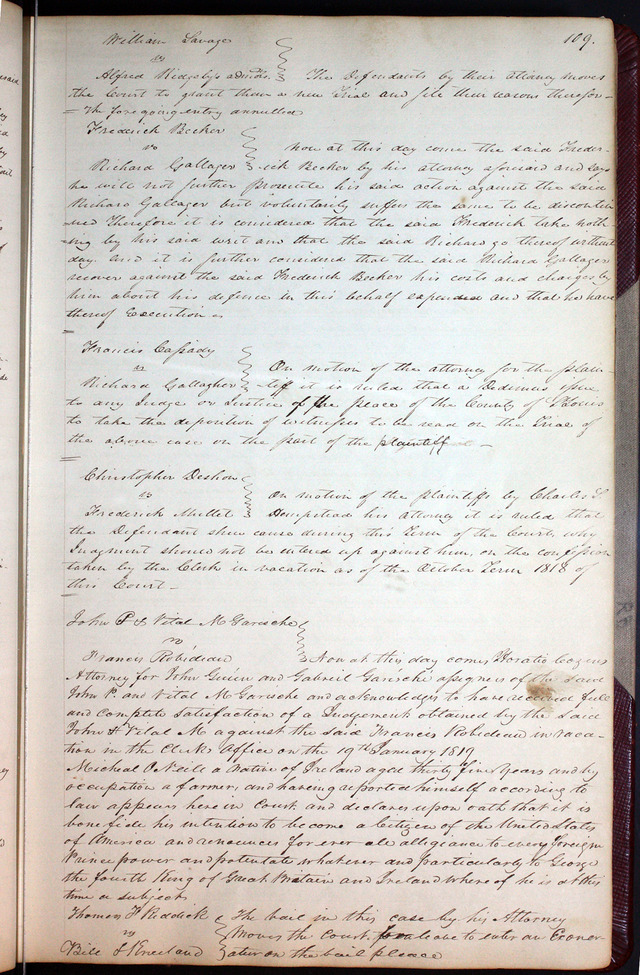 109.
William Savage
vs
Alfred Ridgelys admrs. The Defendants by their attorney moves
the Court to grant them a new Trial and file their reasons therefor
The foregoing entry annulled
Frederick Becker
vs now at this day come the said Freder-
Richard Gallager ick Becker by his attorney aforesaid and says
he will not further prosecute his said action against the said
Richard Gallager but voluntarily suffers the same to be discontin
ued Therefore it is considered that the said Frederick take noth-
ing by his said writ and that the said Richard go thereof without
day. And it is further considered that the said Richard Gallager
recover against the said Frederick Becker his costs and charges by
him about his defence in this behalf expended and that he have
thereof Execution
Francis Cassady
vs On motion of the attorney for the plain-
Richard Gallagher tiff it is ruled that a Dedimus issue
to any Judge or Justice of the peace of the County of St Louis
to take the deposition of witnesses to be read on the Trial of
the above case on the part of the plaintiff
Christopher Deshon
vs On motion of the plaintiffs by Charles S
Frederick Mullet Hempstead his attorney it is ruled that
the Defendant shew cause during this Term of the Court, why
Judgment should not be entered up against him, on the confession
taken by the Clerk in vacation as of the October Term 1818 of
this Court
John P & Vital M Garesche
vs
Francis Robideau Now at this day comes Horatio Cozens
Attorney for John and Gabriel Garesche assignees of the said
John P. and Vital M Garesche and acknowledges to have received full
and Complete Satisfaction of a Judgement obtained by the said
John & Vital M against the said Francis Robideau in vaca-
tion in the Clerks Office on the 19th January 1819
Micheal O Neill a Native of Ireland aged thirty five Years and by
occupation a farmer, and having reported himself according to
law appears here in Court and declares upon oath that it is
bone fide his intention to become a Citizen of the United States
of America and renounces for ever all allegiance to every foreign
Prince power and potentate whatever and particularly to George
the fourth King of Great Britain and Ireland where of he is at this
time a subject
Thomas F Riddick The bail in this case by his Attorney
vs Moves the Court for leave to enter an Exoner-
Bill & Kneeland atur on the bail piece